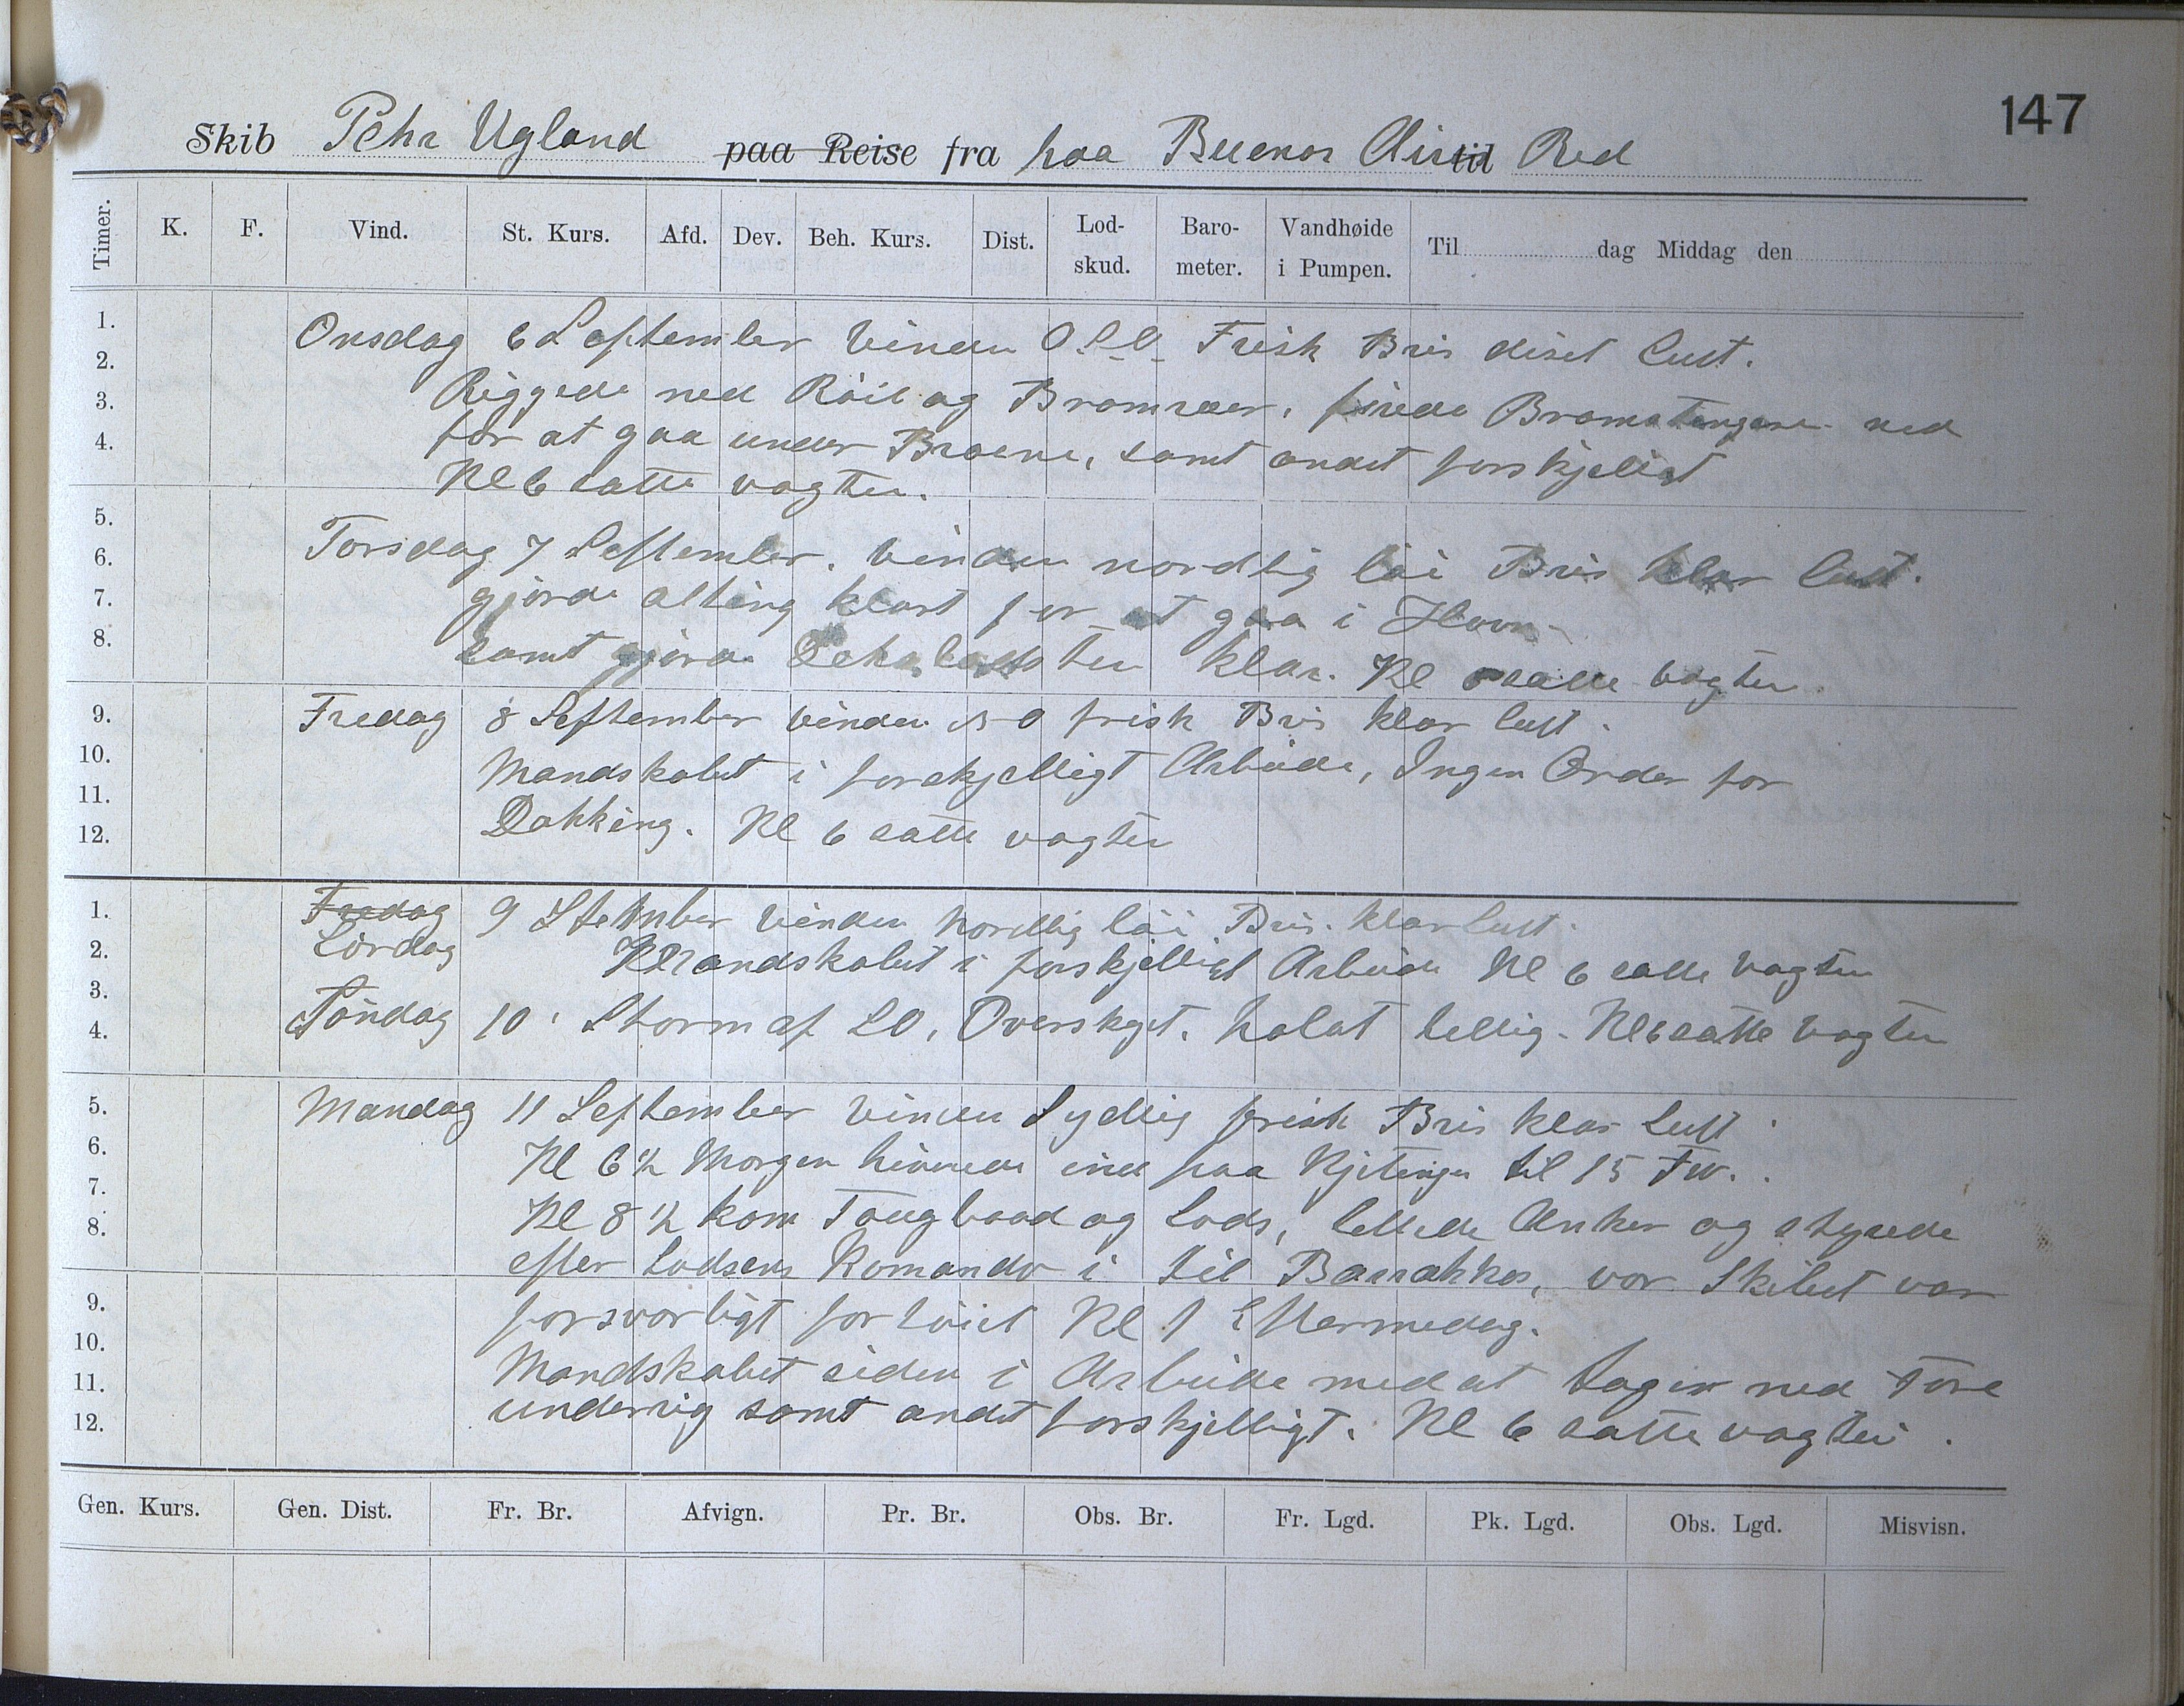 147
Skib Pehr Ugland paa Reise fra paa Buenos Aires til Red
Timer. K. F. Vind. St. Kurs. Afd. Dev. Beh. Kurs. Dist. Lod-skud. Baro-meter. Vandhøide i Pumpen. Til dag Middag den
1.
2.
3.
4.
5.
6.
7.
8.
9.
10.
11.
12.
Onsdag 6 September Vinden Frisk Bris diset Luft.
Riggede ned Röil og Bramræer, firede Bramstengerne ned
for at gaa under Broene, samt andet forskjelligt
Kl 6 satte vagter.
Torsdag 7 September. Vinden nordlig löi Bris klar luft.
gjorde alting klart for at gaa i Havn
samt gjorde klar. Kl satte vagter.
Fredag 8 September vinden NO frisk Bris klar luft.
Mandskabet i forskjelligt Arbeide, Ingen Order for
Dokking. Kl 6 satte vagter
1.
2.
3.
4.
5.
6.
7.
8.
9.
10.
11.
12.
Fredag 9 Stember Vinden Nordlig löi Bris. klar luft.
Lördag Mandskabet i forskjelligt Arbeide Kl 6 satte Vagter
Söndag 10. Storm af SO, Overskyet. holdt hellig. Kl 6 satte Vagter
Mandag 11 September Vinden Sydlig frisk Bris klar Luft.
Kl 6 1/2 Morgen hivede ind paa Kjetingen til 15 Fv.
Kl 8 1/2 kom Taugbaad og Lods, lettede Anker og styrede
efter Lodsens Komando i til Barrakkos, vor Skibet var
forsvarligt fortöiet Kl 1 Eftermedag.
Mandskabet siden i Arbeide med at tagen ned Fore
underrig samt andet forskjelligt. Kl 6 satte vagter.
Gen. Kurs. Gen. Dist. Fr. Br. Afvign. Pr. Br. Obs. Br. Fr. Lgd. Pk. Lgd. Obs. Lgd. Misvisn.